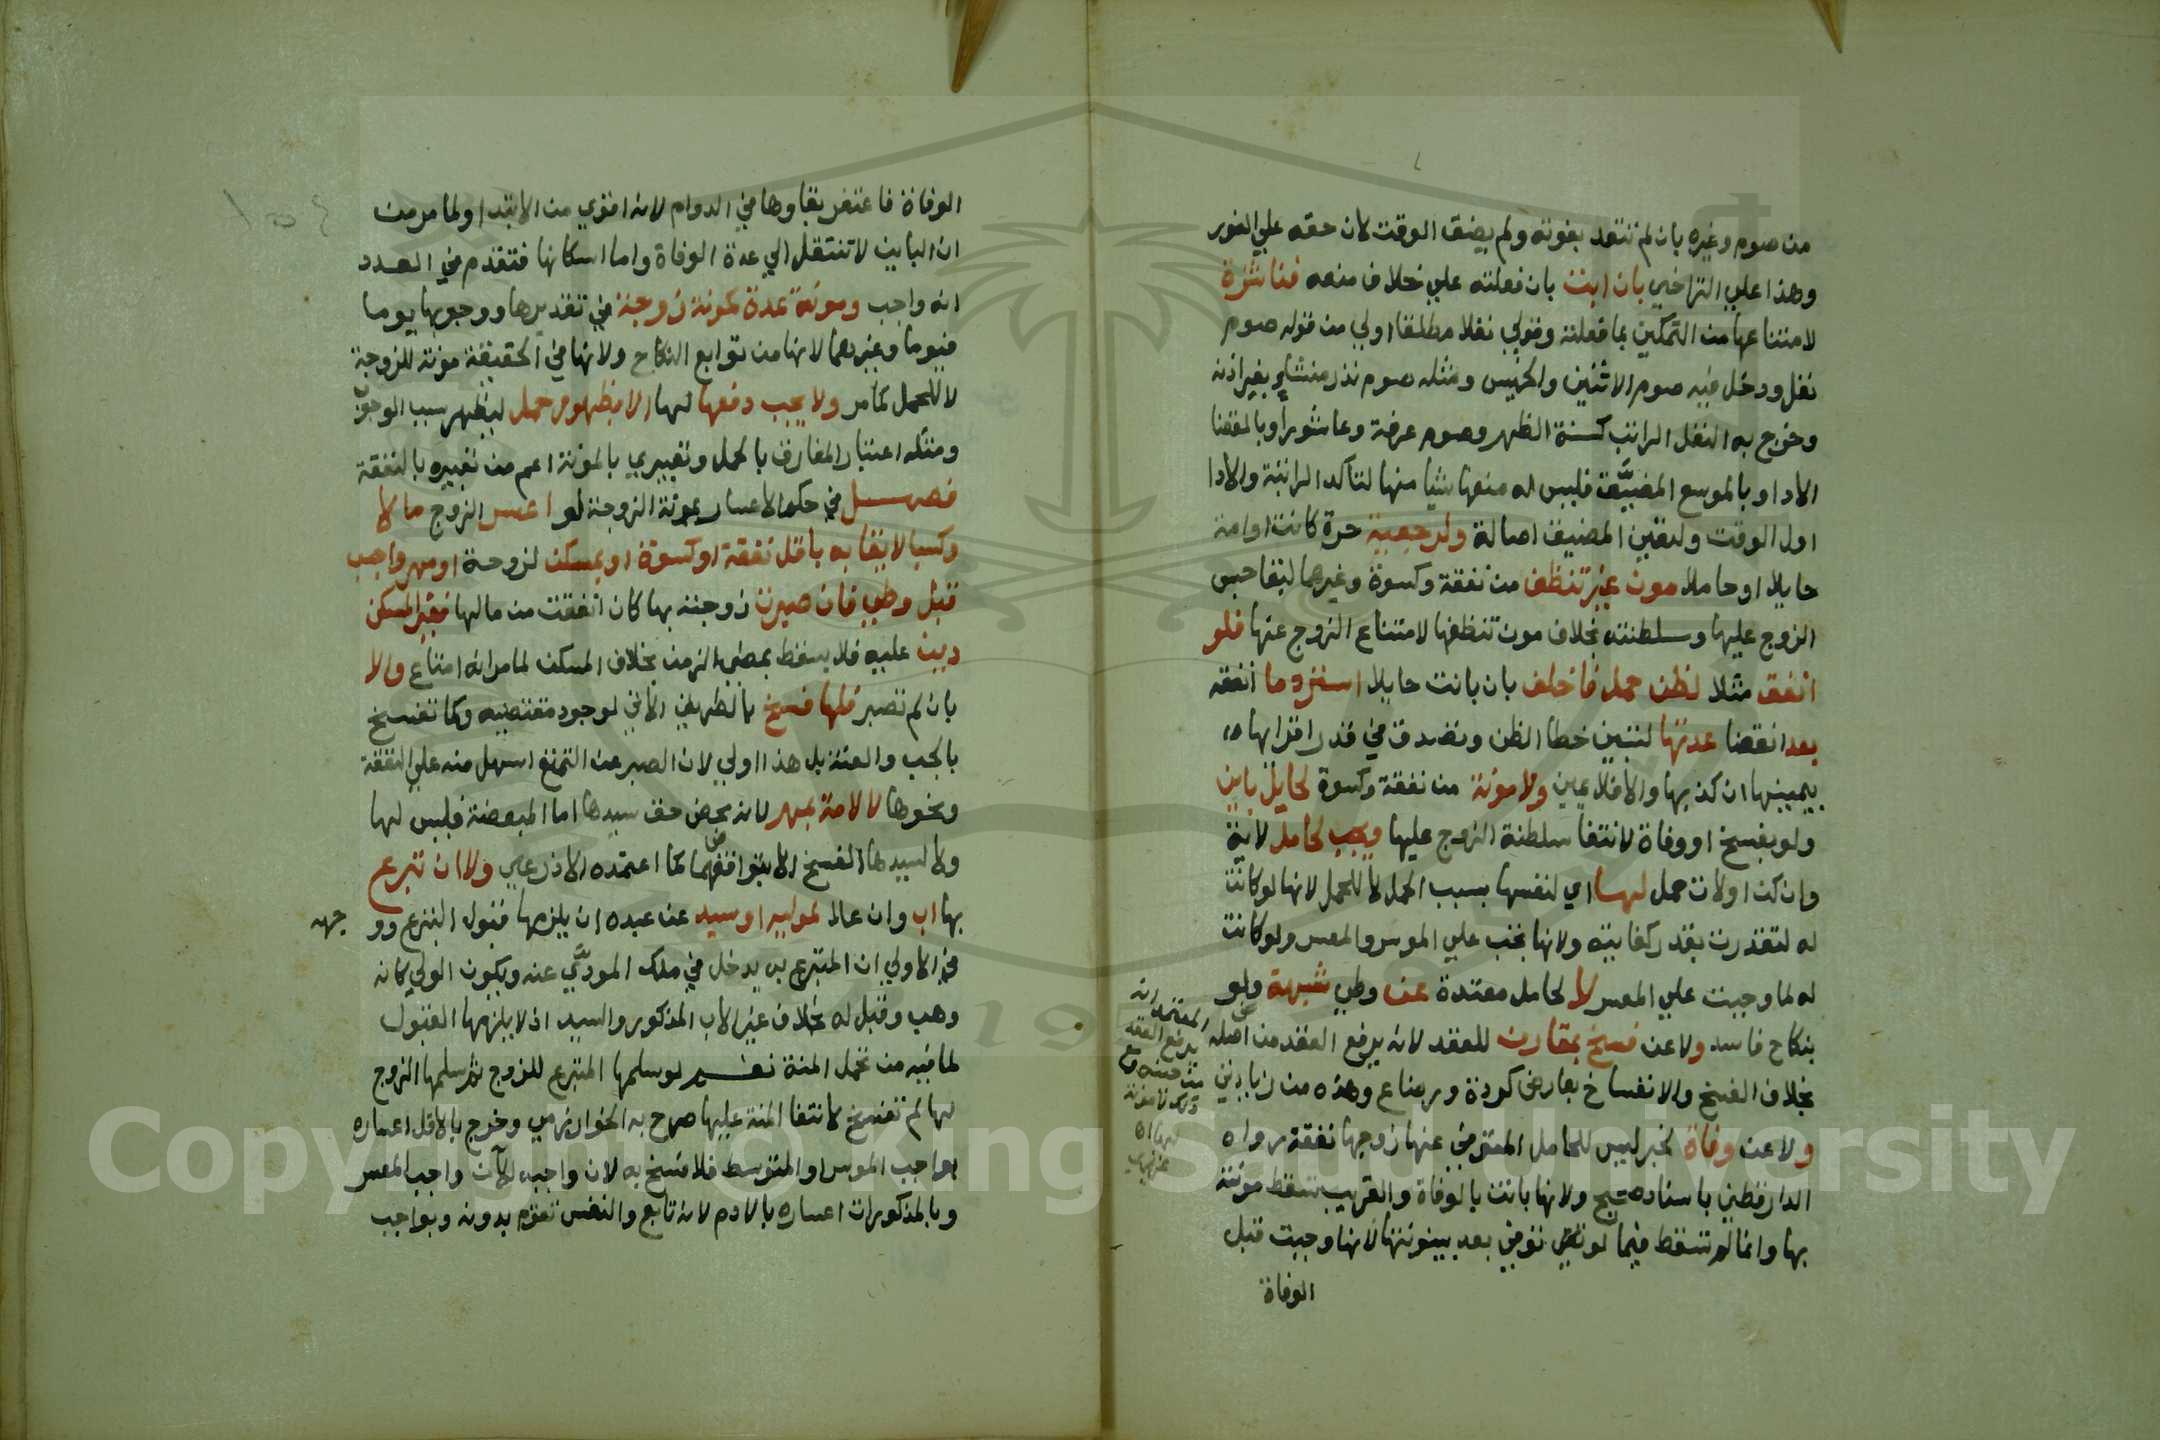 من صوم وغيره بان لم تتعد بفوته ولم يضق الوقت لان حقه علي الفور
وهذا علي التراخي بان ابت بان فعلته علي خلاف منعه فناشزة
لامتناعها من التمكين بما فعلته وقولي نفلا مطلقا اولي من قوله صوم
نفل ودخل فيه صوم الاثنين والخميس ومثله صوم نذر منشاء بغير اذنه
وخرج به النفل الراتب كسنة الظهر وصوم عرفة وعاشورا وبالقضا
الادا وبالموسع المضيق فليس له منعها شيا منها لتاكد الراتبة والادا
اول الوقت ولتعين المضيق اصالة ولرجعية حرة كانت او امة
حايلا او حاملا مون غير تنظف من نفقة وكسوة وغيرها لبقا حبس
الزوج عليها وسلطنته بخلاف مون تنظفها لامتناع الزوج عنها فلو
انفق مثلا لظن حمل فاخلف بان بانت حايلا استرد ما انفقه
بعد انقضا عدتها لتبين خطا الظن وتصدق في قدر اقرايها
بيمينها ان كذبها والا فلا يمين ولا مونة من نفقة وكسوة لحايل باين
ولو بفسخ او وفاة لانتفا سلطنة الزوج عليها ويجب لحامل لاية
وان كن اولات حمل لها اي لنفسها بسبب الحمل لا للحمل لانها لو كانت
له لتقدرت بقدر كفايته ولانها تجب علي الموسر والمعسر ولو كانت
له لما وجبت علي المعسر لا لحامل معتدة عن وطي شبهة ولو
بنكاح فاسد ولا عن فسخ بمقارن للعقد لانه يرفع العقد من اصله
بخلاف الفسخ والانفساخ بعارض كردة ورضاع وهذه من زيادتي
ولا عن وفاة لخبر ليس للحامل المتوفي عنها زوجها نفقة رواه
الدارقطني باسناد صحيح ولانها بانت بالوفاة والقريب تسقط مونته
بها وانما لم تسقط فيما لو توفي بعد بينونتها لانها وجبت قبل
الوفاة
الوفاة فاغتفر بقاوها في الدوام لانه اقوي من الابتدا ولما مر من
ان الباين لا تنتقل الي عدة الوفاة واما اسكانها فتقدم في العدد
انه واجب ومونة عدة كمونة زوجة في تقديرها ووجوبها يوما
فيوما وغيرهما لانها من توابع النكاح ولانها في الحقيقة مونة للزوجة
لا للحمل كما مر ولا يجب دفعها لها الا بظهور حمل ليظهر سبب الوجوب
ومثله اعتبار المفارق بالحمل وتعبيري بالمونة اعم من تعبيره بالنفقة
فصل في حكم الاعسار بمونة الزوجة لو اعسر الزوج مالا
وكسبا لايقا به باقل نفقة او كسوة او بمسكن لزوجة او مهر واجب
قبل وطي فان صبرت زوجته بها كان انفقت من مالها فغير المسكن
دين عليه فلا يسقط بمضي الزمن بخلاف المسكن لما مر انه امتاع والا
بان لم تصبر فلها فسخ بالطريق الاتي لوجود مقتضيه وكما تفسخ
بالجب والعنة بل هذا اولي لان الصبر عن التمتع اسهل منه علي النفقة
ونحوها لا لامة بمهر لانه محض حق سيدها اما المبعضة فليس لها
ولا لسيدها الفسخ الا بتوافقهما كما اعتمده الاذرعي ولا ان تبرع
بها اب وان علا لموليه او سيد عن عبده ان يلزمها قبول التبرع وو جهه
في الاولي ان المتبرع به يدخل في ملك المودي عنه ويكون الولي كانه
وهب وقبل له بخلاف غير الاب المذكور والسيد اذ لا يلزمها القبول
لما فيه من تحمل المنة نعم لو سلمها المتبرع للزوج ثم سلمها الزوج
لها لم تفسخ لانتفا المنة عليها صرح به الخوارزمي وخرج بالاقل اعساره
بواجب الموسر او المتوسط فلا فسخ به لان واجبه الآن واجب المعسر
وبالمذكورات اعساره بالادم لانه تابع والنفس تقوم بدونه وبواجب
Copyright © King Saud University